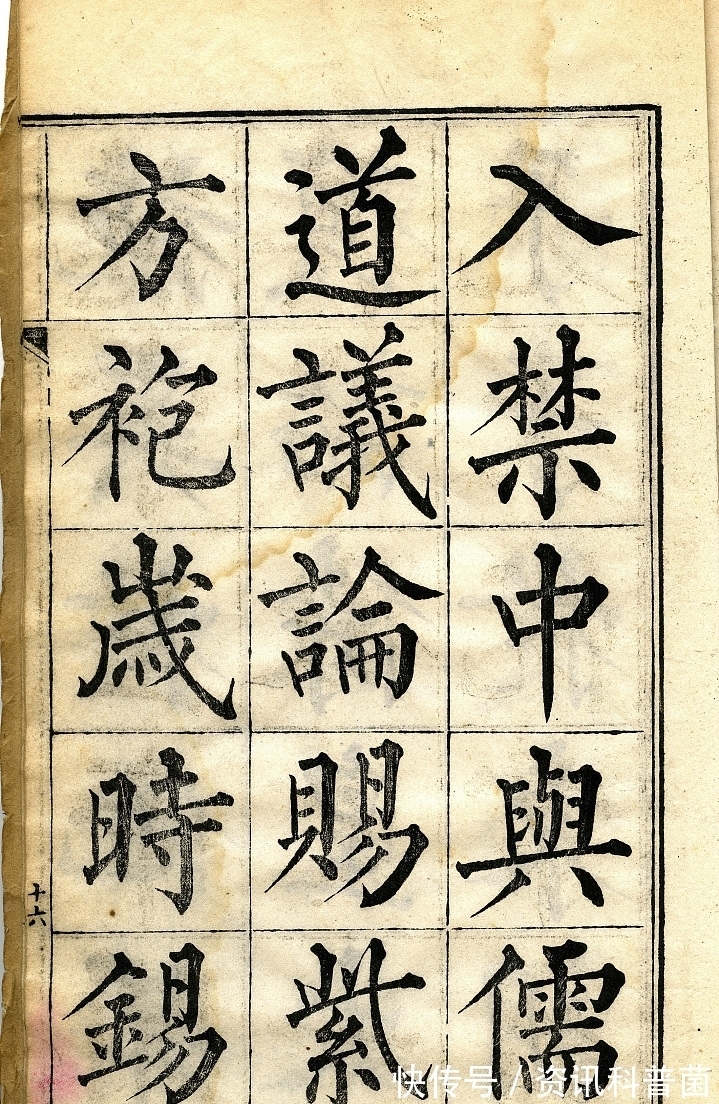 入禁中與儒
道議論賜紫
方袍歲時錫
十六
快传号 / 资讯科普菌